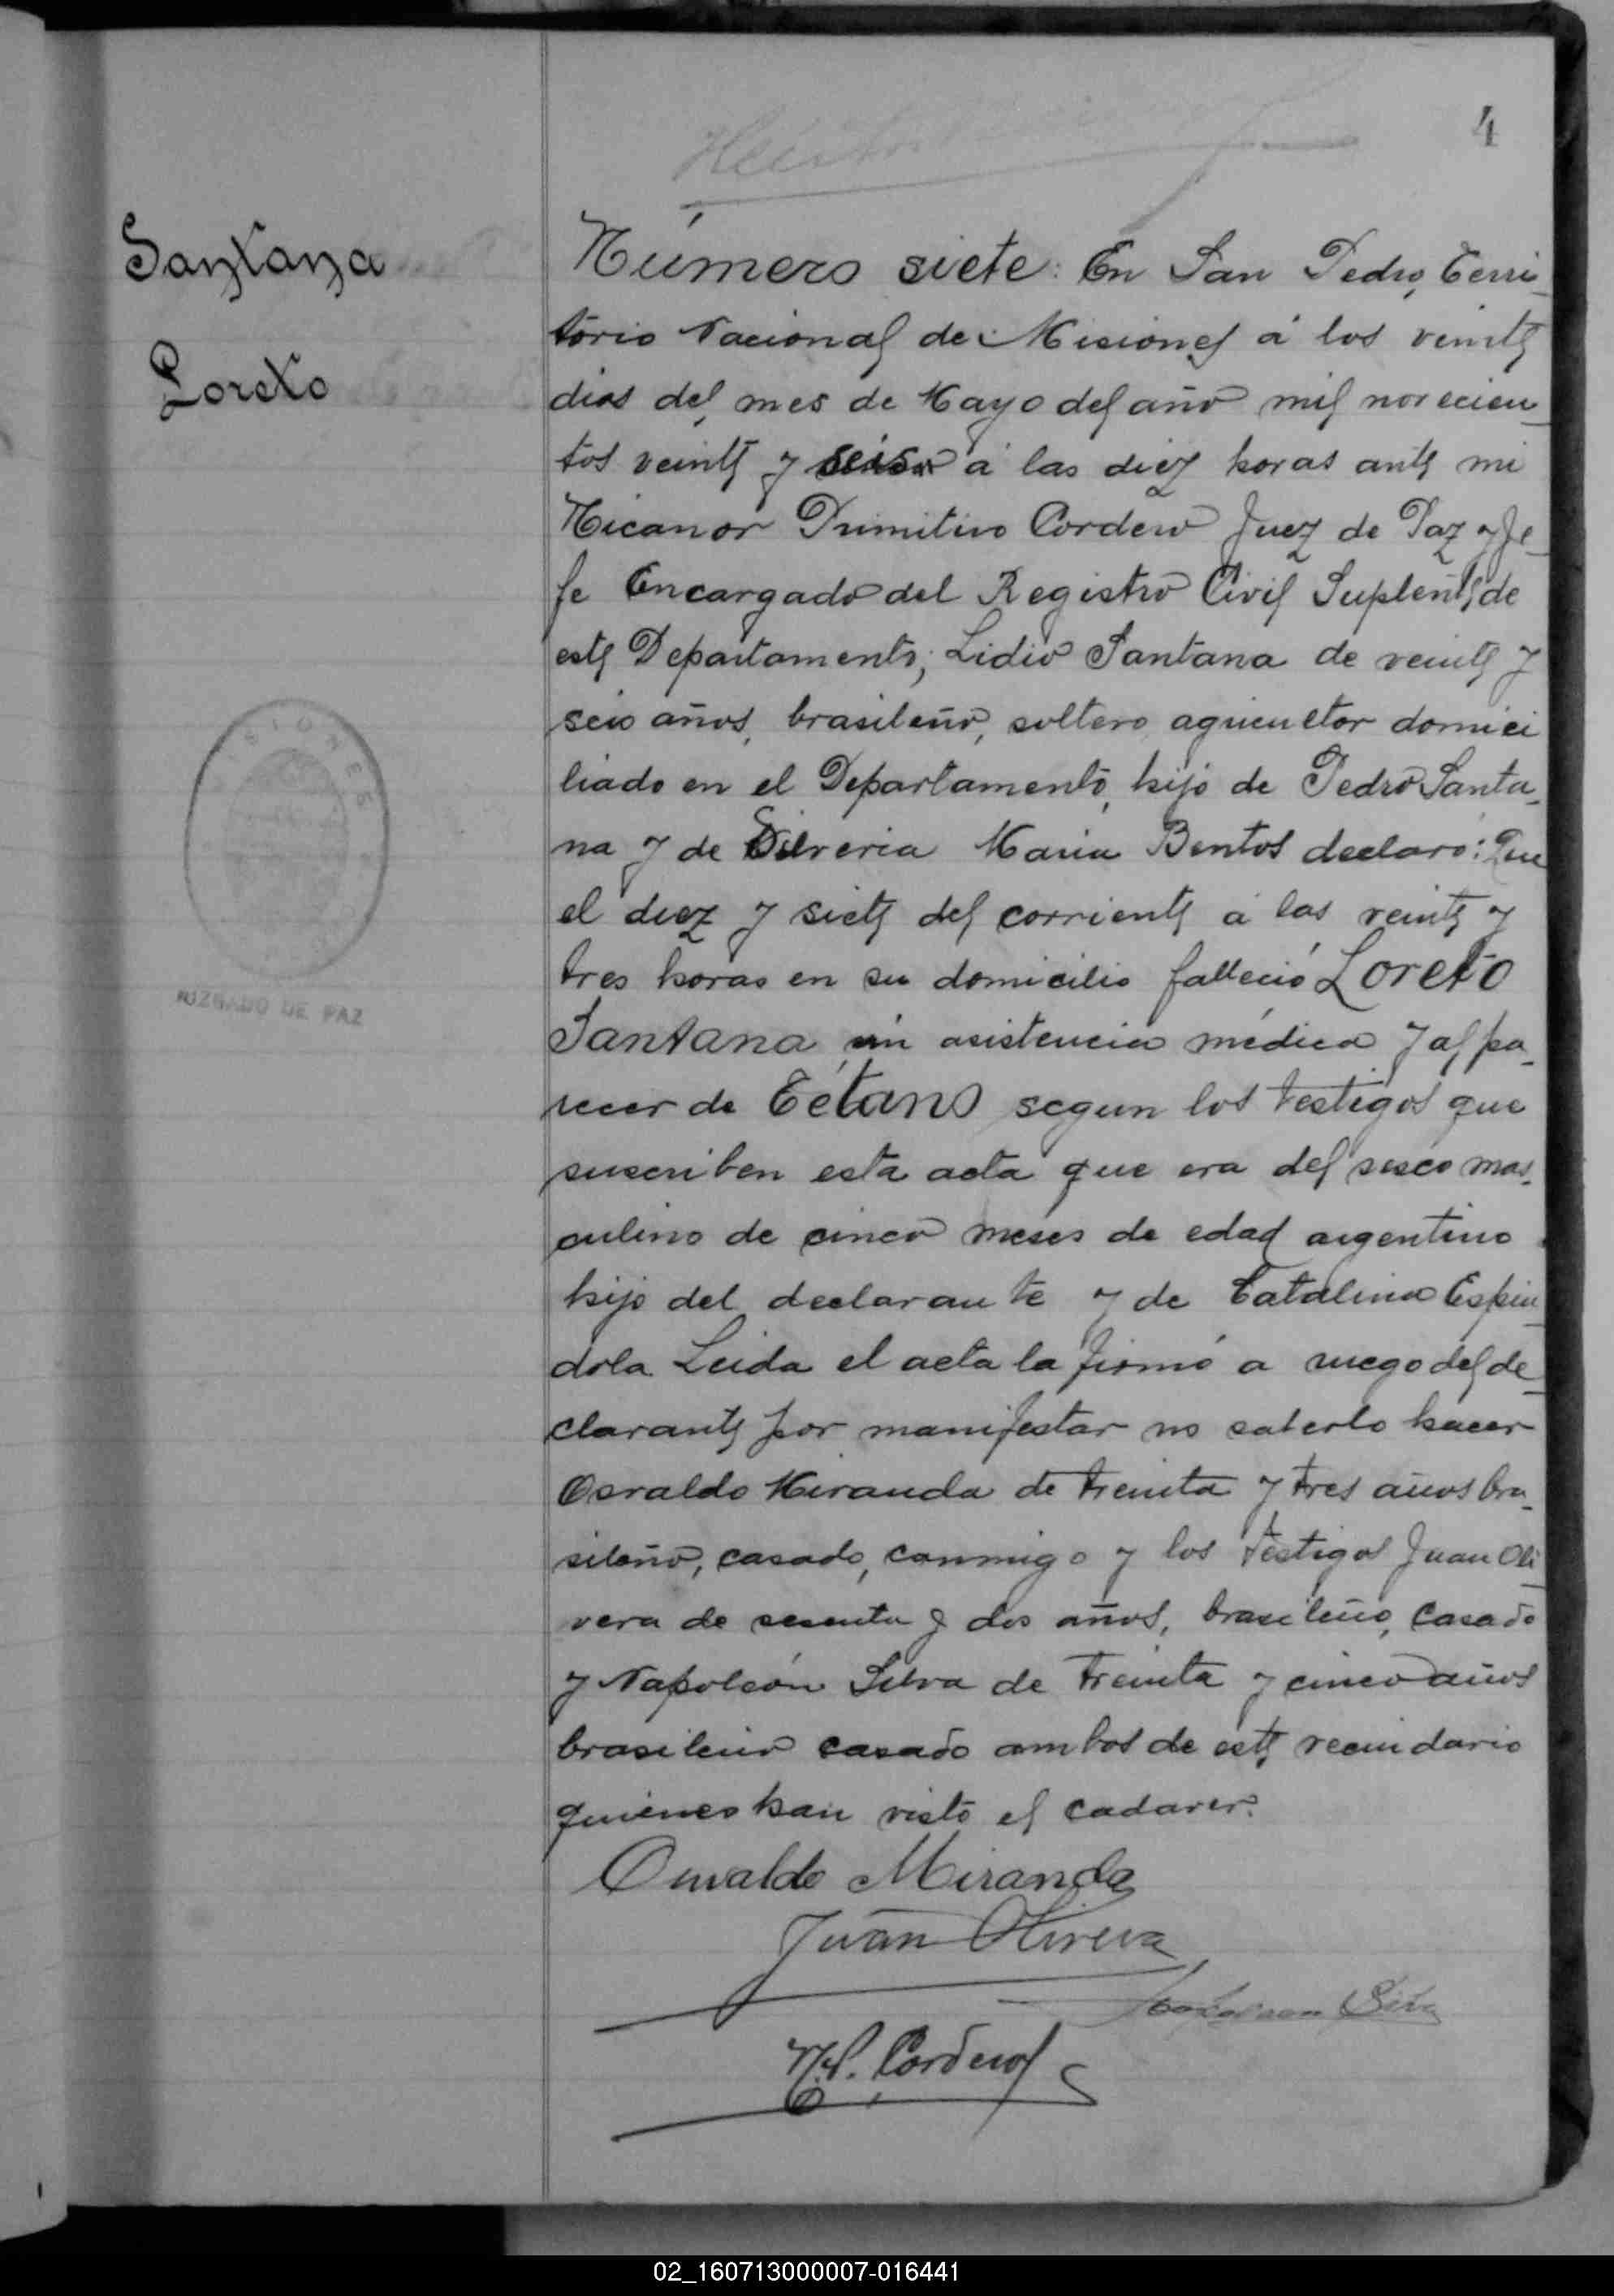 4
Santana
Loreto
Número siete: En San Pedro, Terri-
torio Nacional de Misiones á los veinte
dias del mes de Mayo del año mil novecien-
tos veinte y seis á las diez horas ante mi
Nicanor Primitivo Cordero Juez de Paz y Je-
fe Encargado del Registro Civil Suplente de
este Departamento; Lidio Santana de veinte y
seis años, brasileño, soltero, agricultor domici
liado en el Departamento, hijo de Pedro Santa-
na y de Silveria Maria Bentos declaró: Que
el diez y siete del corriente á las veinte y
tres horas en su domicilio falleció Loreto
Santana sin asistencia médica y al pa-
recer de Tétano segun los testigos que
suscriben esta acta que era del sexo mas-
culino de cinco meses de edad argentino
hijo del declarante y de Catalina Espin-
dola Leida el acta la firmó a ruego del de-
clarante por manifestar no saberlo hacer
Osvaldo Miranda de treinta y tres años bra-
sileño, casado, conmigo y los testigos Juan Oli-
vera de sesenta y dos años, brasileño, casado
y Napoleón Silva de treinta y cinco años
brasileño casado ambos de este vecindario
quienes han visto el cadaver.
Osvaldo Miranda
Juan Olivera
Napoleon Silva
N.P. Cordero
MISIONES
JUZGADO DE PAZ
02_160713000007-016441